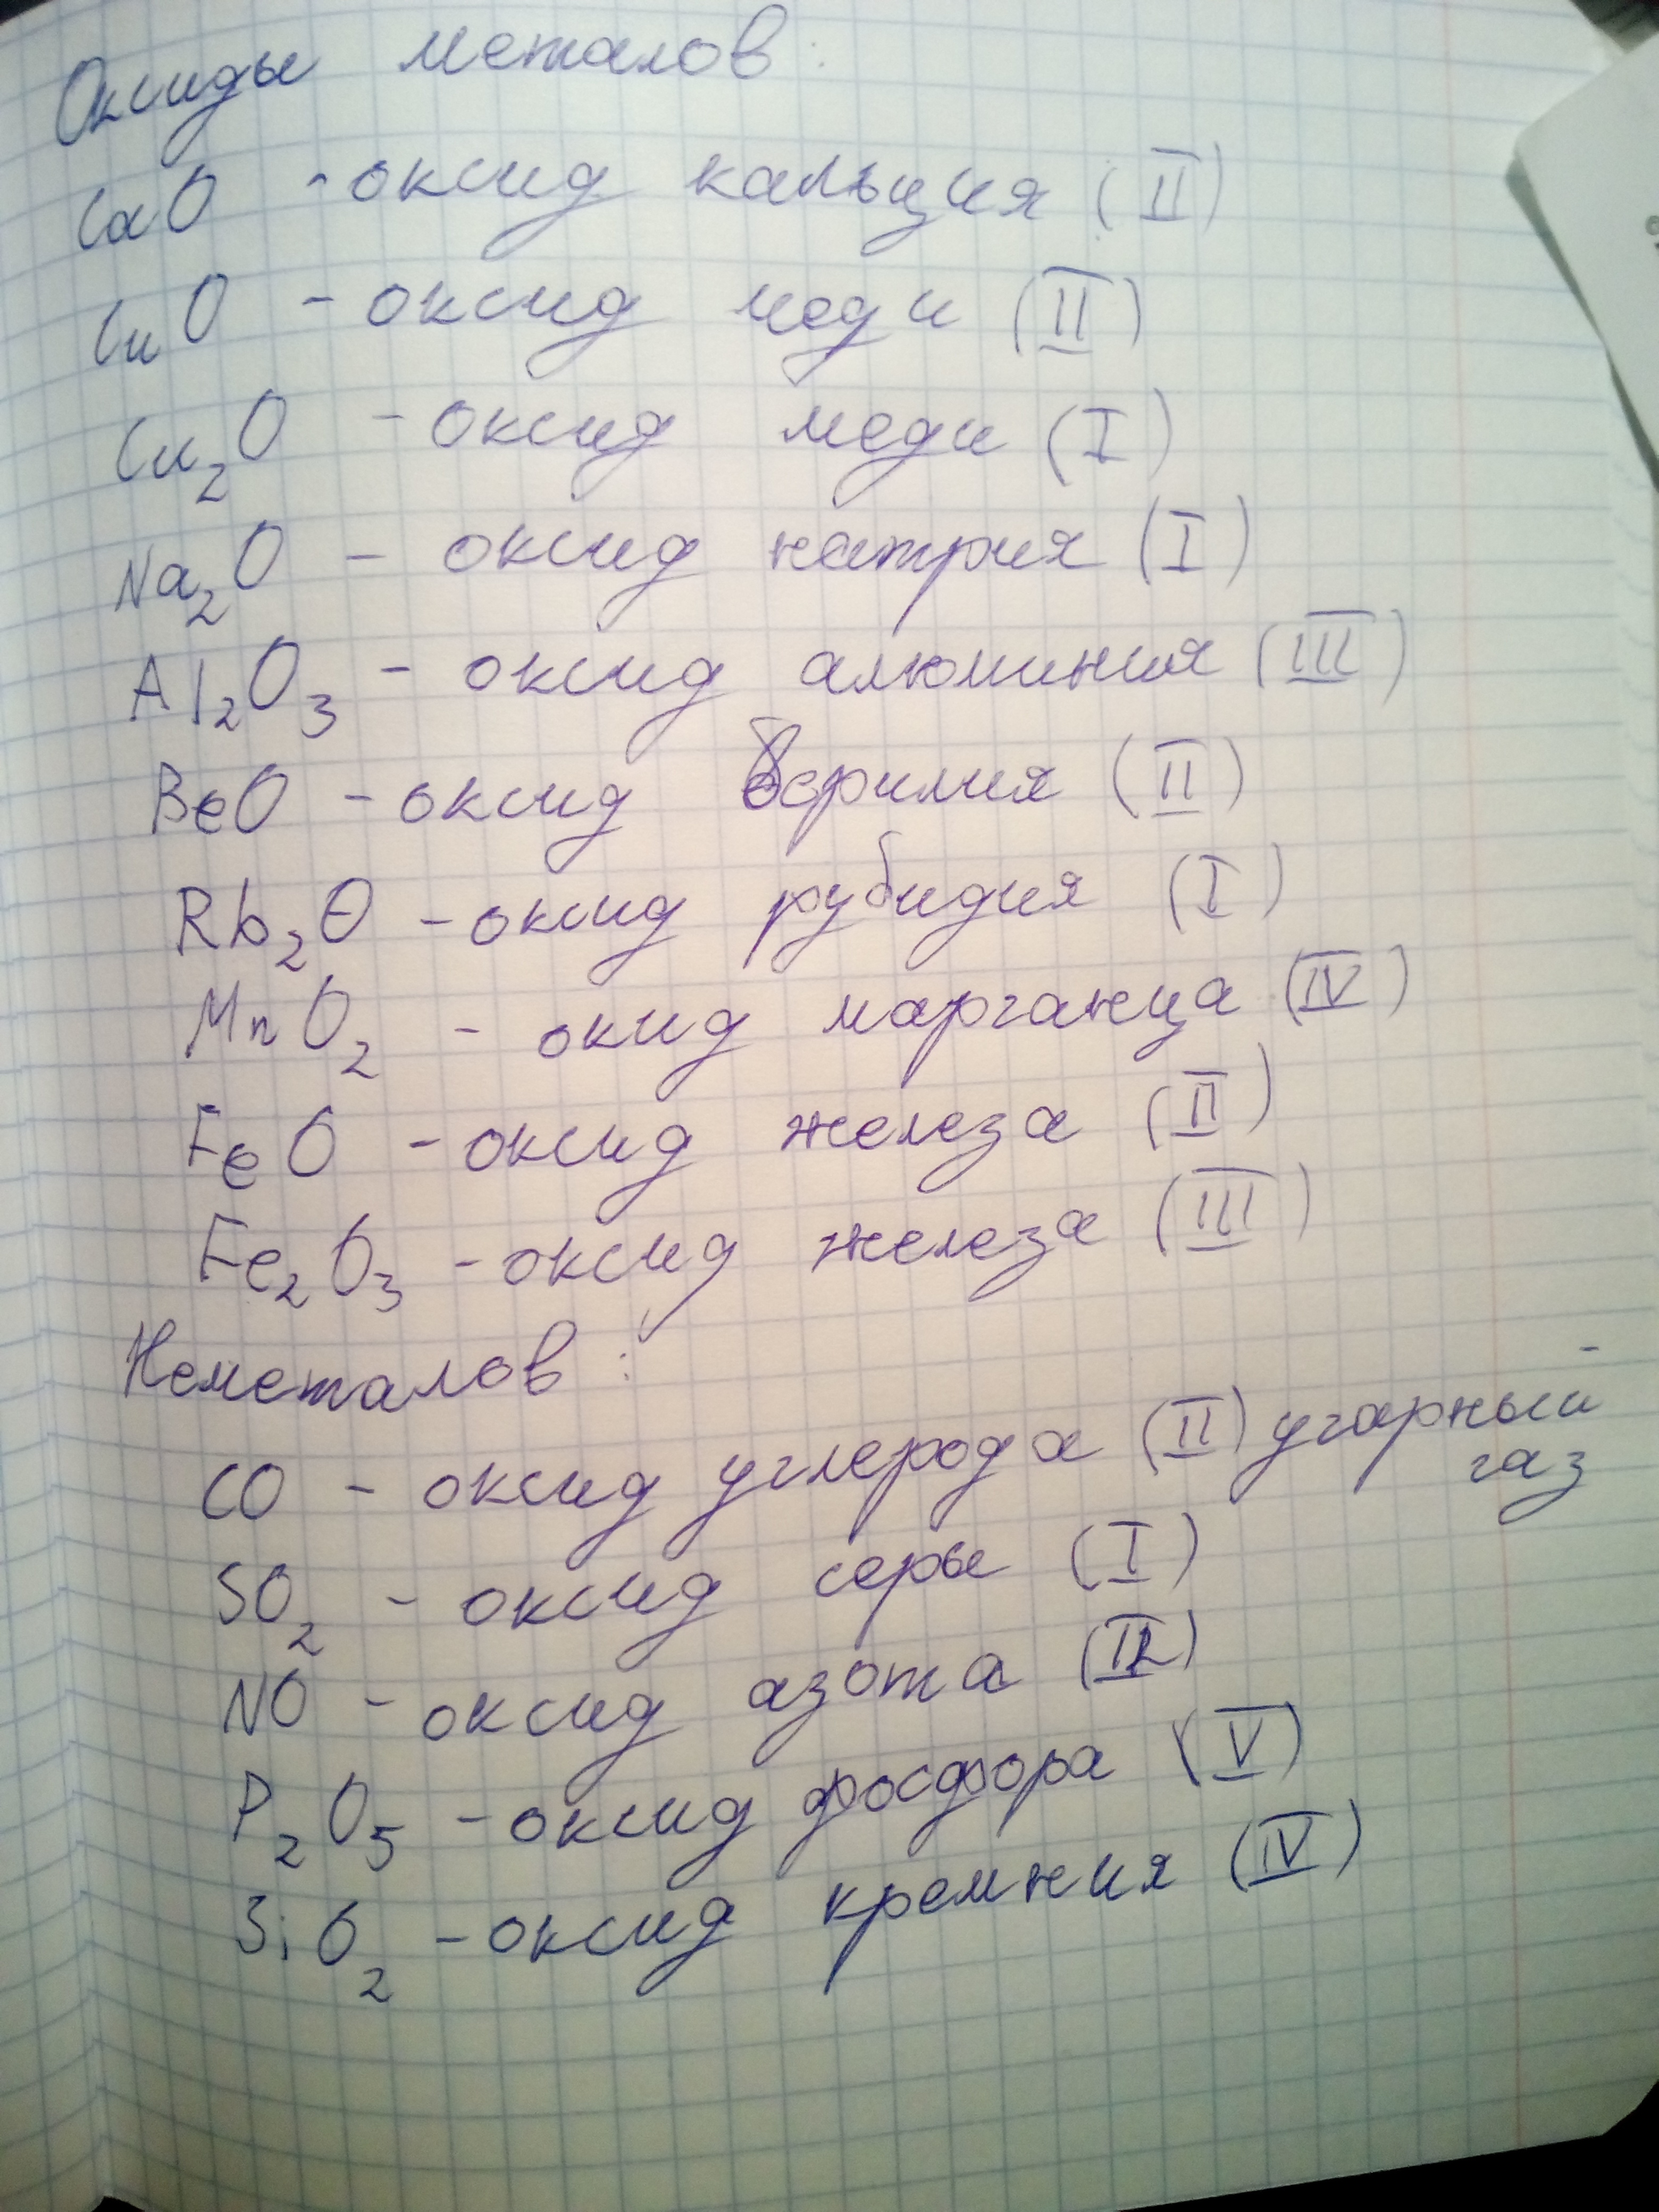 Оксиды металов:
CaO - оксид кальция (II)
CuO - оксид меди (II)
Cu₂O - оксид меди (I)
Na₂O - оксид натрия (I)
Al₂O₃ - оксид алюминия (III)
BeO - оксид берилия (II)
Rb₂O - оксид рубидия (I)
MnO₂ - окид марганца (IV)
FeO - оксид железа (II)
Fe₂O₃ - оксид железа (III)
Неметалов:
CO - оксид углерода (II) угарный
газ
SO₂ - оксид серы (I)
NO - оксид азота (II)
P₂O₅ - оксид фосфора (V)
SiO₂ - оксид кремния (IV)